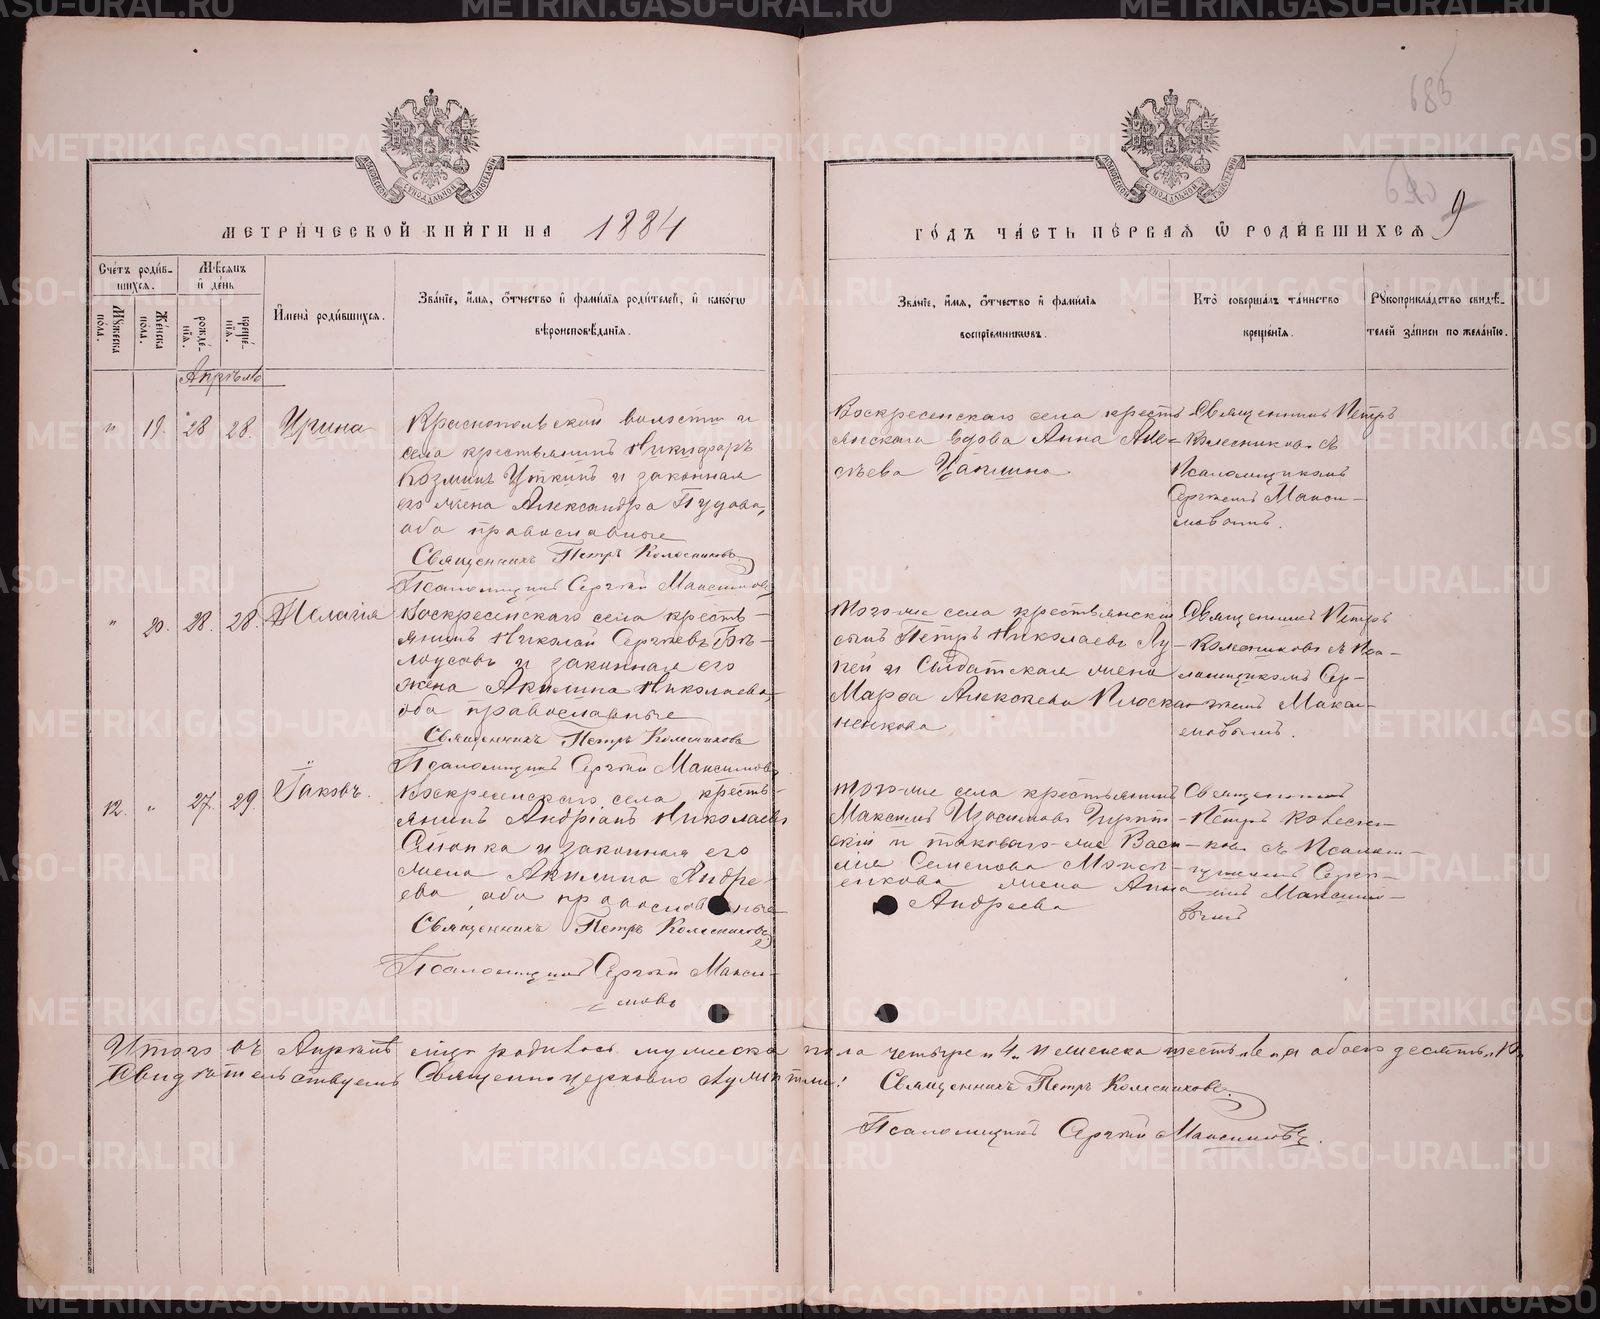 МЕТРИЧЕСКОЙ КНИГИ НА 1884
ГОДЪ ЧАСТЬ ПЕРВАЯ Ѿ РОДИВШИХСЯ 9
685
Счетъ родив-
шихся.
Мѣсяцъ
и день
Мужеска
пола.
Женска
пола.
рожде-
нія.
креще-
нія.
Имена родившихся.
Званіе, имя, отчество и фамилія родителей, и какогѡ
вѣроисповѣданія.
Званіе, имя, отчество и фамилія
воспріемникѡвъ.
Кто совершалъ таинство
крещенія.
Рукоприкладство свидѣ-
телей записи по желанію.
Апрѣль
" 19. 28 28. Ирина
Краснопольской волости и
села крестьянинъ Никифоръ
Козминъ Уткинъ и законная
его жена Александра Пудова,
оба православные
Священникъ Петръ Колесниковъ
Псаломщикъ Сергѣй Максимовъ
Воскресенскаго села кресть
янская вдова Анна
Священникъ Петръ
Колесниковъ съ
Псаломщикомъ
Сергѣемъ Макси-
мовымъ.
" 20. 28. 28. Пелагія
Воскресенскаго села кресть-
янинъ Николай Сергѣевъ Бѣ-
лоусовъ и законная его
жена Акилина Николаева,
оба православные
Священникъ Петръ Колесниковъ
Псаломщикъ Сергѣй Максимовъ
Того-же села крестьянскій
сынъ Петръ Николаевъ
и Солдатская жена
Марфа
Священникъ Петръ
Колесниковъ съ Пса-
ломщикомъ Сер-
гѣемъ Макси-
мовымъ.
12. " 27. 29. Іаковъ.
Воскресенскаго села кресть-
янинъ Андріанъ Николаевъ
и законная его
жена Акилина Андре-
ева, оба православные
Священникъ Петръ Колесниковъ
Псаломщикъ Сергѣй Макси-
мовъ
Того-же села крестьянинъ
Максимъ
и таковаго-же Васи-
лія Семенова
жена Анна
Андреева
Священникъ
Петръ Колесни-
ковъ съ Псалом-
щикомъ Серг-
Максимо-
вымъ
Итого въ Апрѣлѣ мцѣ родилось мужеска пола четыре 4. и женска шесть а обоего десять
Свидѣтельствуемъ Священно церковно служители:
Священникъ Петръ Колесниковъ.
Псаломщикъ Сергѣй Максимовъ.
METRIKI.GASO-URAL.RU